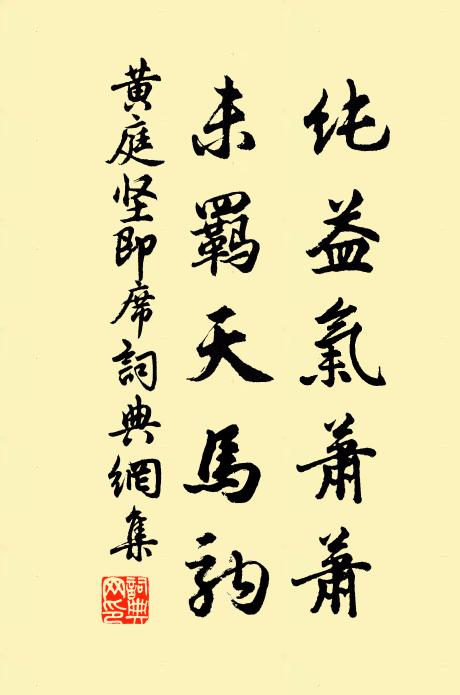 纯益氣蕭蕭
未羈天馬駒
黄庭坚即席詞典網集
詞典网印